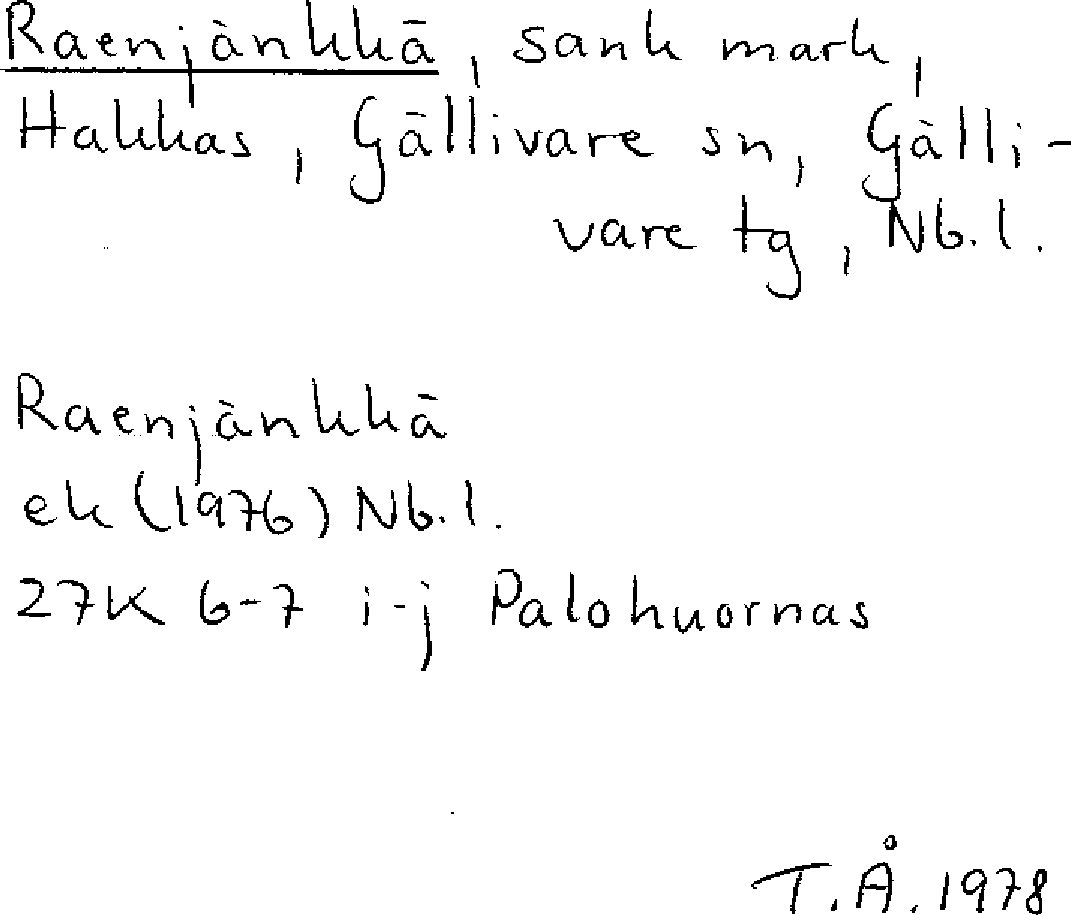 Raenjänkkä, sank mark,
Hakkas, Gällivare sn, Gälli-
vare tg, Nb.l.
Raenjänkkä
ek (1976) Nb.l.
27K 6-7 i-j Palohuornas
T.Å. 1978